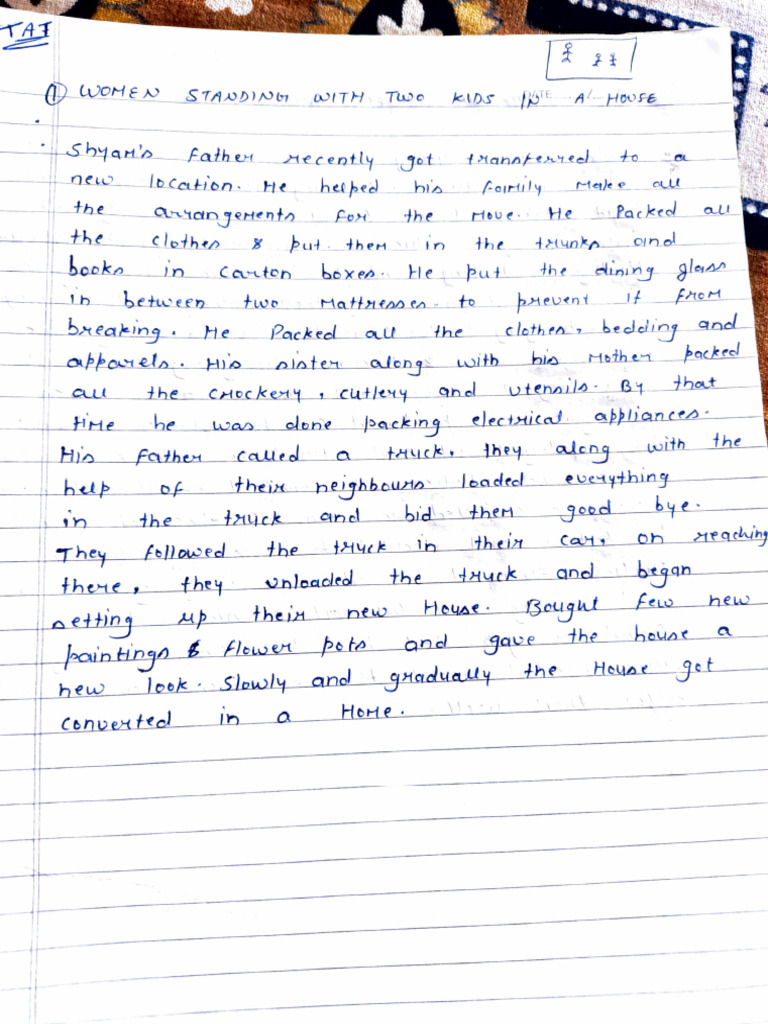 TAT
① WOMEN STANDING WITH TWO KIDS IN A HOUSE
Shyam's father recently got transferred to a
new location. He helped his family make all
the arrangements for the move. He Packed all
the clothes & put them in the trunks and
books in carton boxes. He put the dining glass
in between two mattresses to prevent it from
breaking. He Packed all the clothes, bedding and
apparels. His sister along with his Mother packed
all the crockery, cutlery and utensils. By that
time he was done packing electrical appliances.
His father called a truck, they along with the
help of their neighbours loaded everything
in the truck and bid them good bye.
They followed the truck in their car, on reaching
there, they unloaded the truck and began
setting up their new House. Bought few new
paintings & flower pots and gave the house a
new look. Slowly and gradually the House got
converted in a Home.